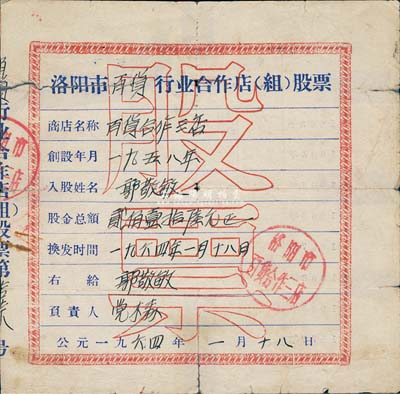 洛阳市百货行业合作店(组)股票
商店名称 百货合作三店
創設年月 一九五八年
入股姓名 郭敬敏
股金总額 貳佰壹拾 元正
换发时間 一九六四年一月十八日
右給 郭敬敏
負責人 党木森
公元一九六四年一月十八日
股票
洛阳市
行业合作店(組)股票第 号